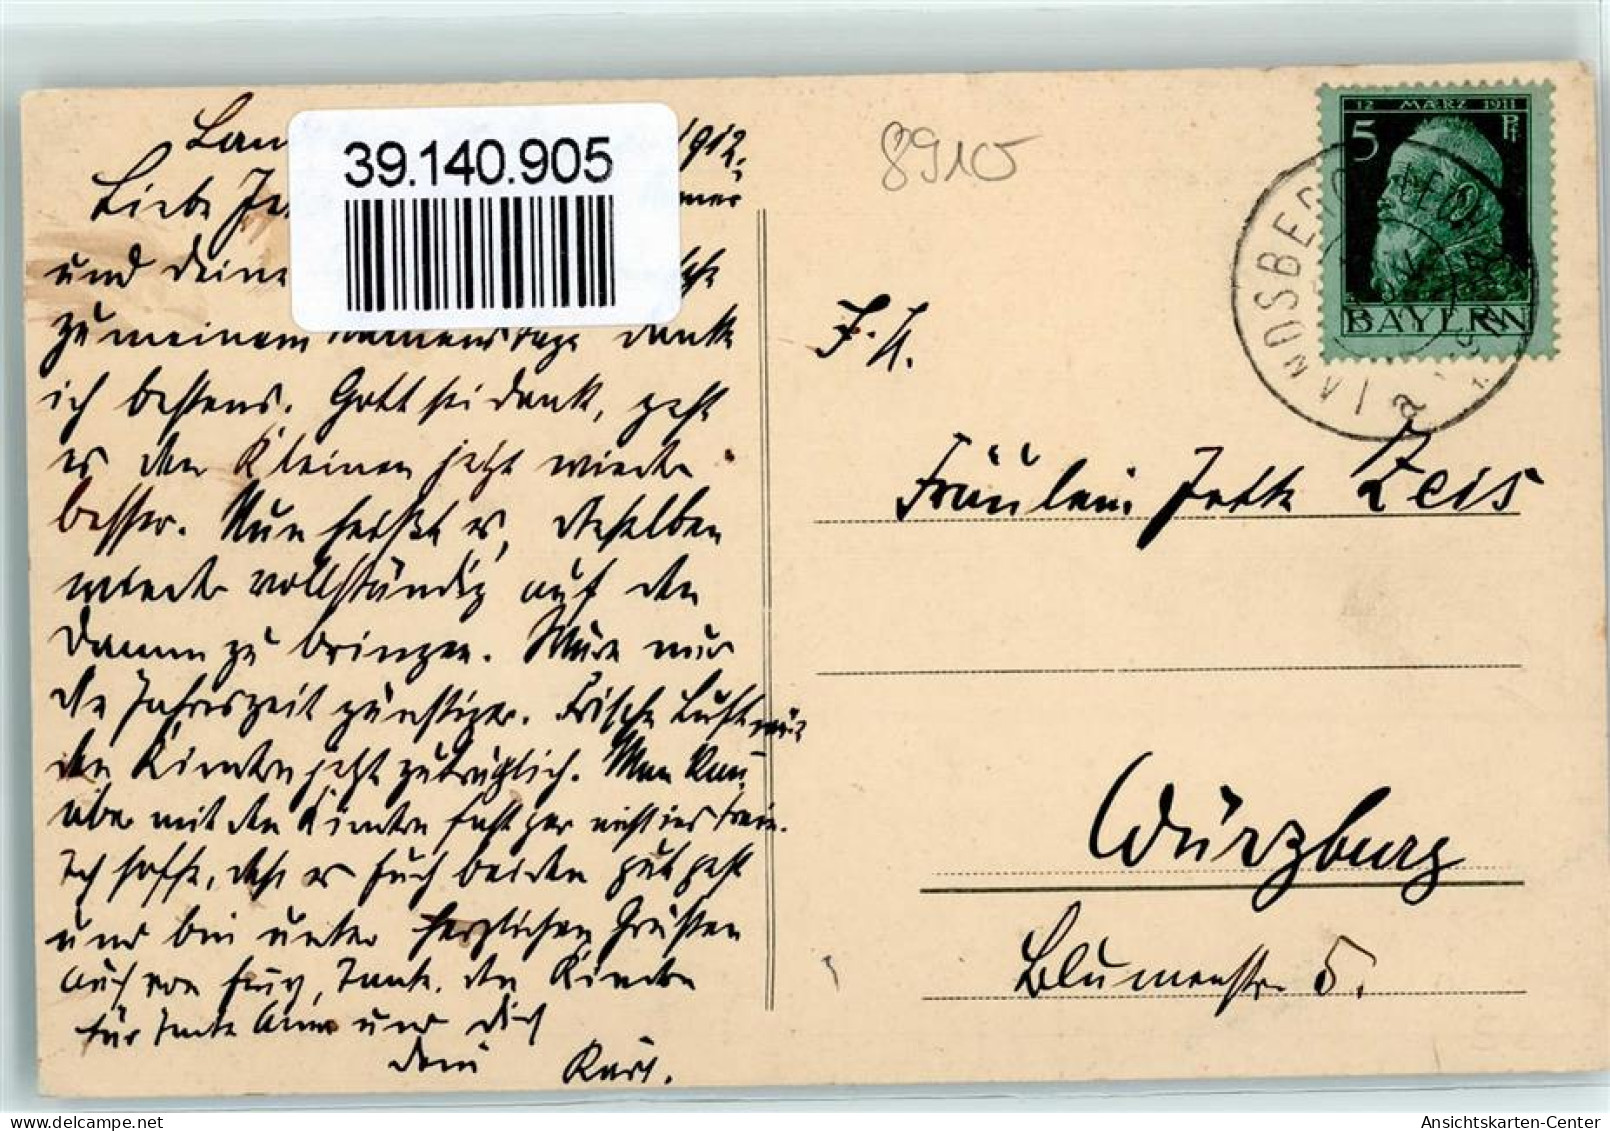 Lan
1912.
39.140.905
Liebe Je
und deine
zu meinem Namenstage danke
ich bestens. Gott sei dank, geht
es den Kleinen jetzt wieder
besser. Nun heißt es, dieselben
wieder vollständig auf den
Damm zu bringen. Wäre nur
die Jahreszeit günstiger. Frische Luft wär
den Kindern jetzt zuträglich. Man kan
aber mit den Kindern fast gar nicht ins Freie.
Ich hoffe, daß es Euch beiden gut geht
und bin unter herzlichen Grüßen
auch von Tante. den Kindern
für Tante Anna und dich
dein Karl.
8910
12 MÆRZ 1911
5 Pf
BAYERN
LANDSBERG a. LECH
F. H.
Fräulein Jette Zeis
Würzburg
Blumenstr. 5.
Ansichtskarten-Center